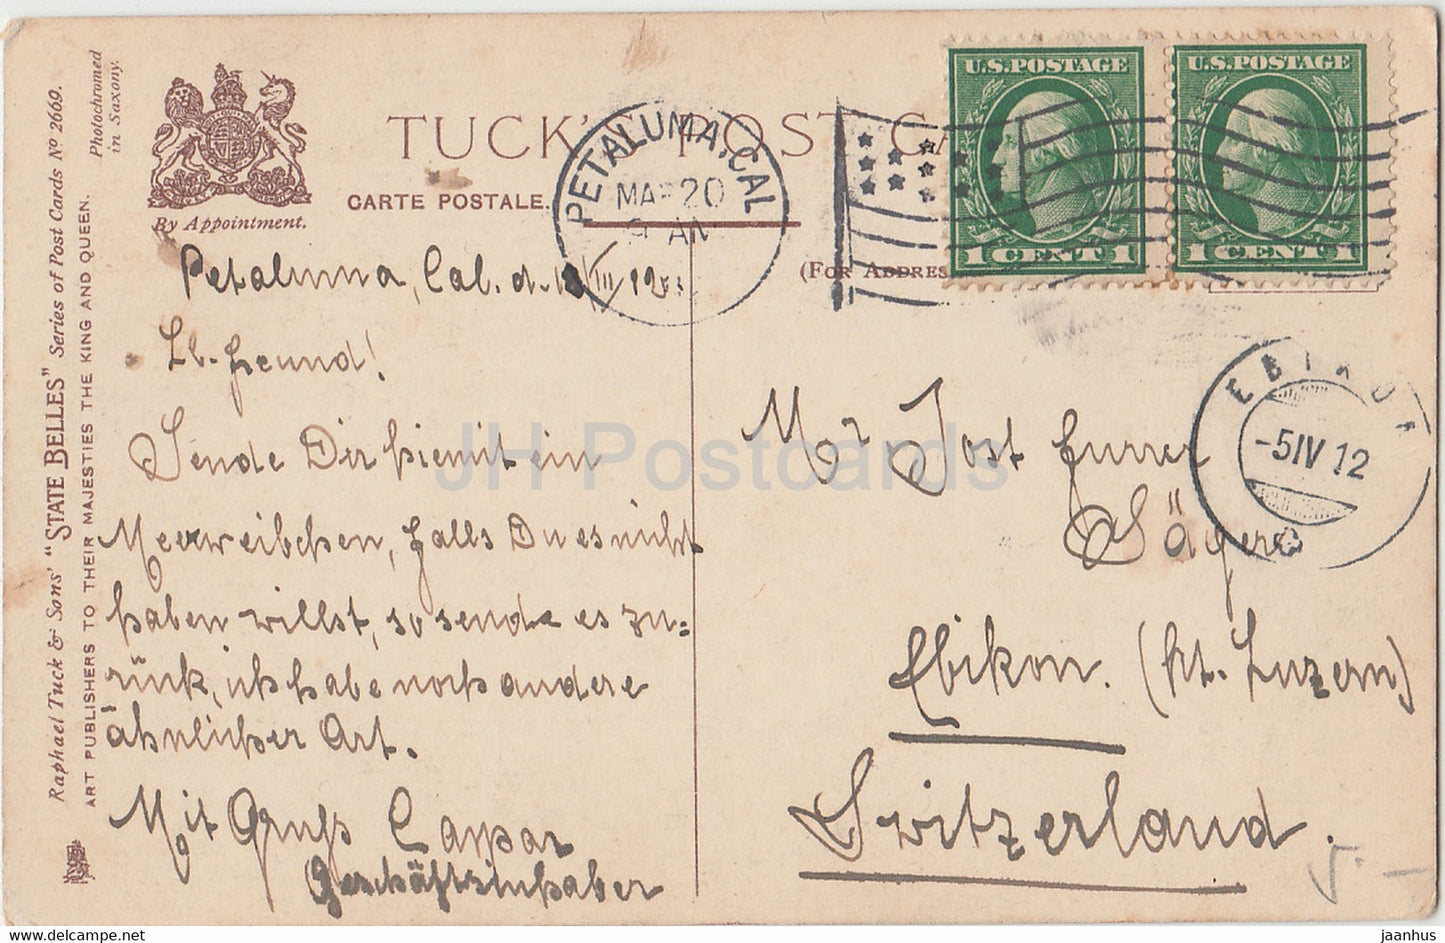 Raphael Tuck & Sons' "STATE BELLES" Series of Post Cards No 2669.
ART PUBLISHERS TO THEIR MAJESTIES THE KING AND QUEEN.
Photochromed
in Saxony.
By Appointment.
TUCK'S POST CA
CARTE POSTALE.
(FOR ADDRES
PETALUMA, CAL
MAR 20
AM
U.S. POSTAGE
1 CENT 1
U.S. POSTAGE
1 CENT 1
EBIKON
-5 IV 12
Petaluma, Cal. d. 18/III/12
Lb. Freund!
Sende Dir hiemit ein
Meerweibchen, falls Du es nicht
haben willst, so sende es zu=
rück, ich habe noch andere
ähnlicher Art.
Mit Gruß Caspar
Geschäftsinhaber
Mr Jost Furrer
Säger
Ebikon. (Kt. Luzern)
Switzerland.
JH Postcards
www.delcampe.net
jaanhus